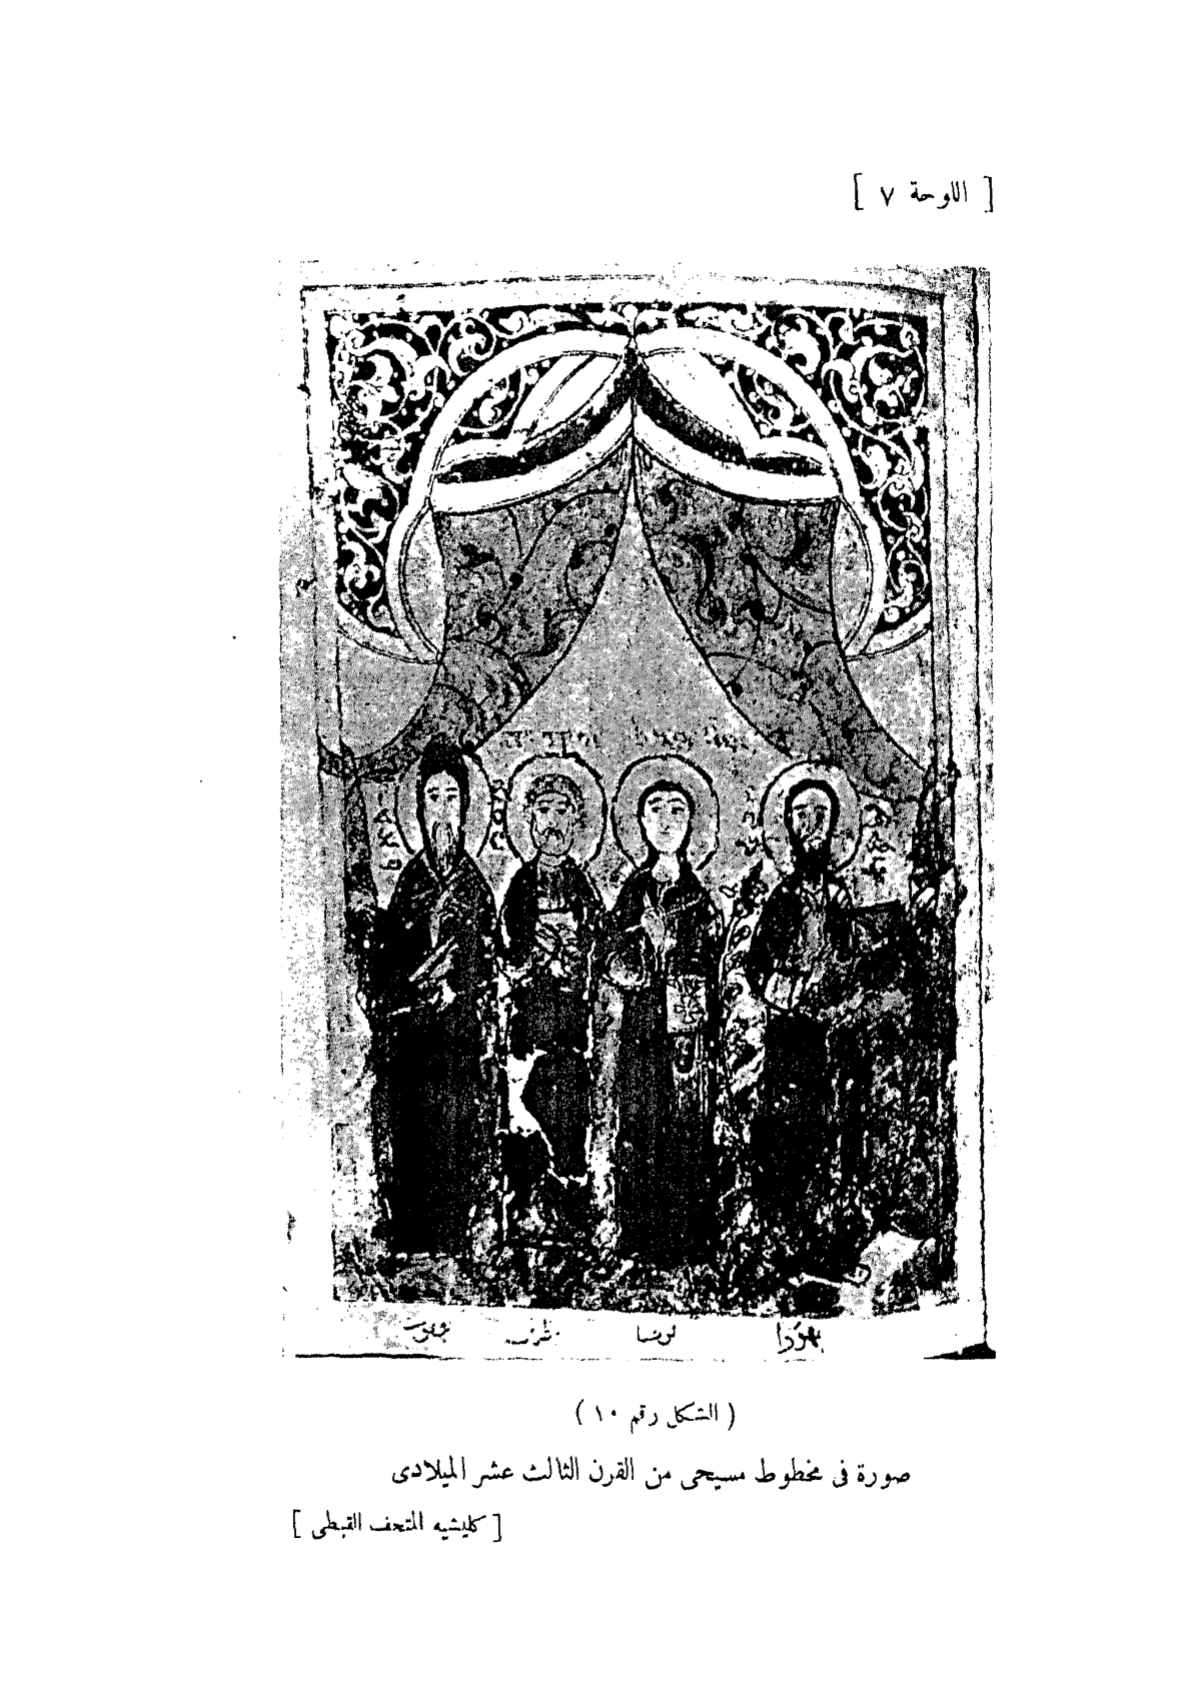 [ اللوحة ٧ ]
يهوذا
يعقوب
( الشكل رقم ١٠ )
صورة فى مخطوط مسيحى من القرن الثالث عشر الميلادى
[ كليشيه المتحف القبطى ]